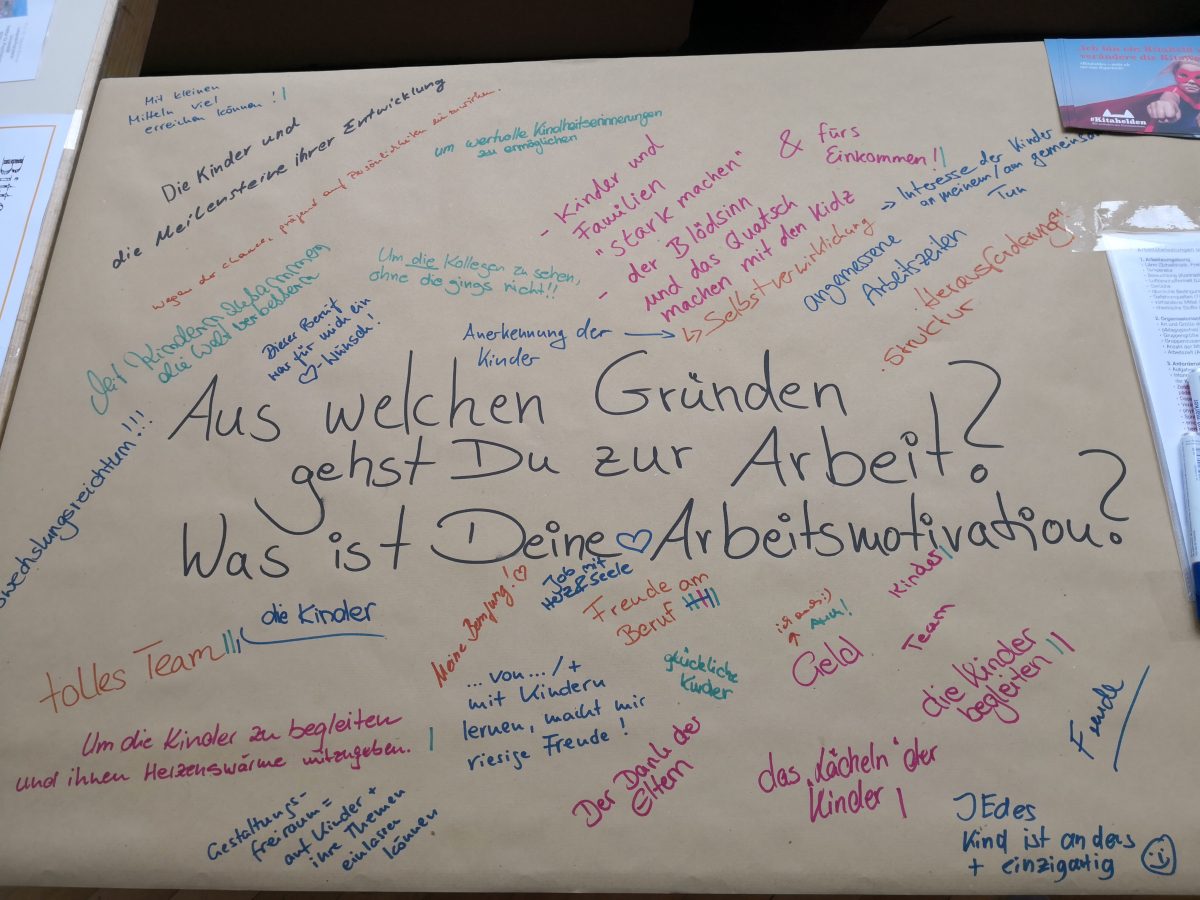 Mit kleinen
Mitteln viel
erreichen können!
Die Kinder und
die Meilensteine ihrer Entwicklung
wegen der chancen, prägend auf Persönlichkeiten einzuwirken.
um wertvolle Kindheitserinnerungen
zu ermöglichen
- Kinder und
Familien
"stark machen"
- der Blödsinn
und das Quatsch
machen mit den Kidz
& fürs
Einkommen!!
→ Interesse der Kinder
an meinem/am gemeinsam
Tun
Ich bin ein Kitaheld
verändere die Kita
#Kitahelden
Mit Kindern zusammen
die Welt verbessern
Um die Kollegen zu sehen,
ohne die gings nicht!!
Dieser Beruf
war für mich ein
♡-Wunsch!
Anerkennung der →
Kinder
↳ Selbstverwirklichung
angemessene
Arbeitszeiten
Herausforderung!
Struktur
Aus welchen Gründen
gehst Du zur Arbeit?
Was ist Deine ♡ Arbeitsmotivation?
wechslungsreichtum!!!
tolles Team
die Kinder
Meine Berufung! ♡
Job mit
Herz & Seele
Freude am
Beruf
ist auch :)
Auch!
Geld
Kinder
Team
glückliche
Kinder
die Kinder
begleiten
Freude
Um die Kinder zu begleiten
und ihnen Herzenswärme mitzugeben.
... von ... / +
mit Kindern
lernen, macht mir
riesige Freude!
Der Dank der
Eltern
das "Lächeln" der
Kinder
Gestaltungs-
freiraum =
auf Kinder +
ihre Themen
einlassen
können
JEdes
Kind ist anders
+ einzigartig